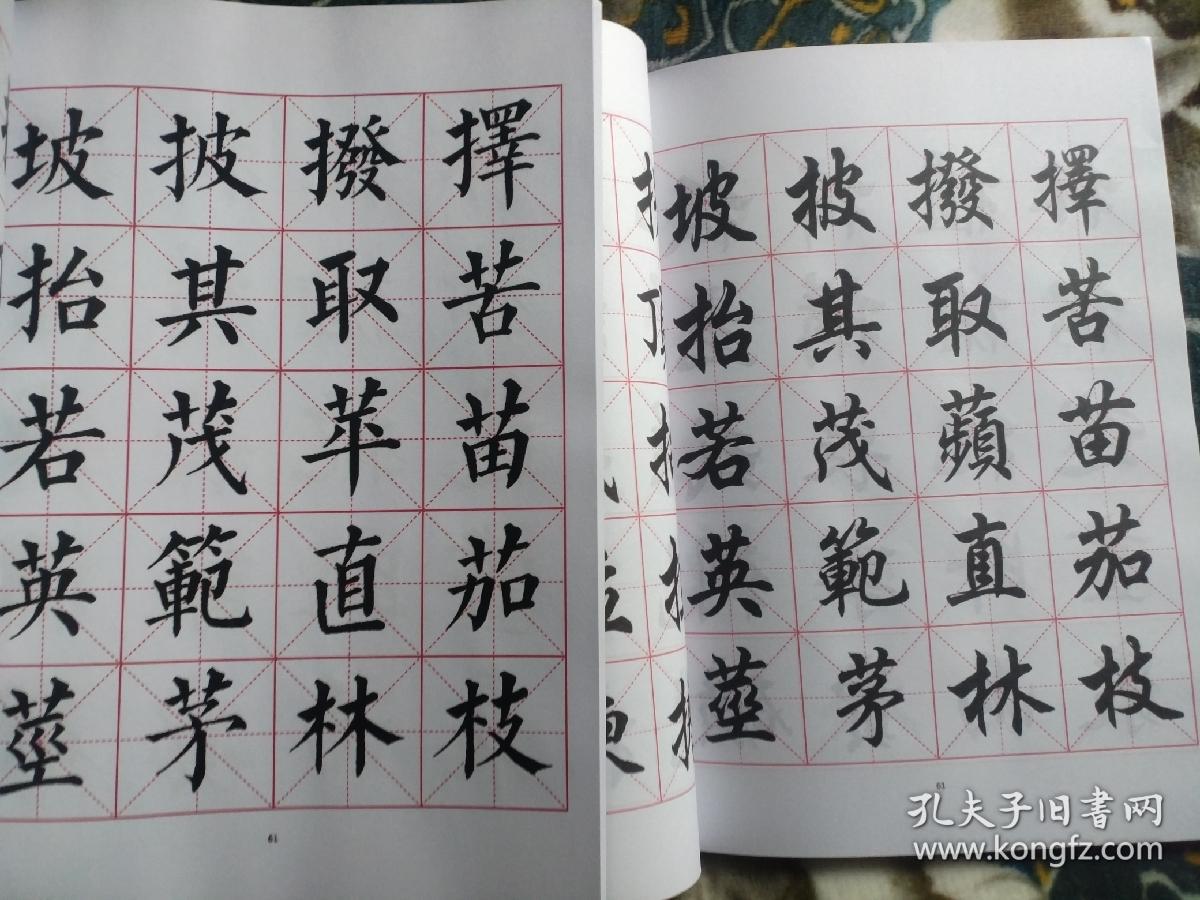 坡披撥擇
抬其取苦
若茂苹苗
英範直茄
莖茅林枝
61
坡披撥擇
抬其取苦
若茂蘋苗
英範直茄
莖茅林枝
63
孔夫子旧书网
www.kongfz.com